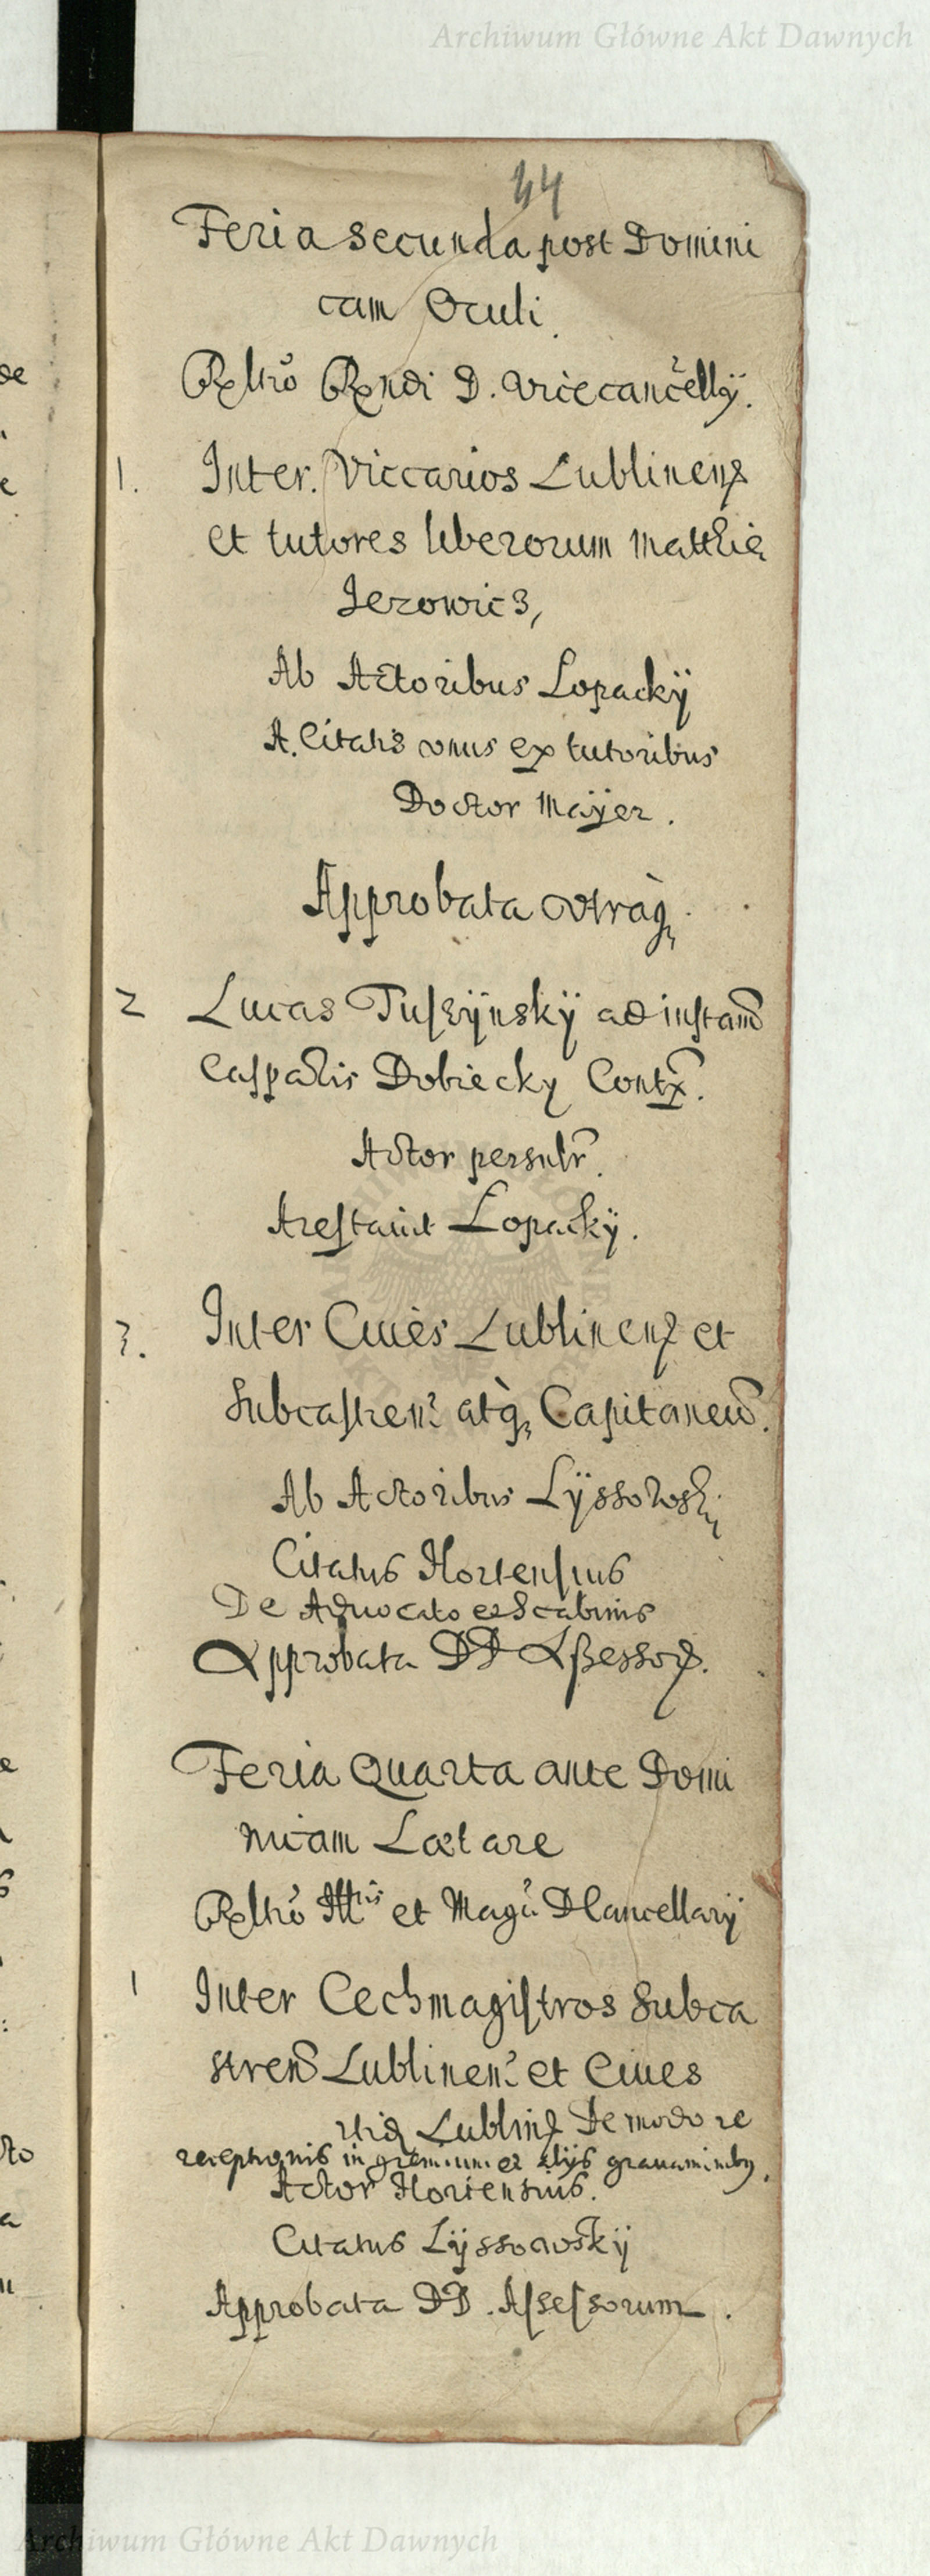 Archiwum Główne Akt Dawnych
44
Feria secunda post Domini
cam Oculi
Reltio Rendi D. Vicecancellÿ.
1. Inter Viccarios Lublinens
et tutores liberorum Matthię
Jerowicz,
Ab Actoribus Lopackÿ
A. Citatis vnus ex tutoribus
Doctor Maÿer.
Approbata vtraq
2 Lucas Tuszÿnskÿ ad instan
Casparis Dobiecky Contra.
Actor persnlr.
Arestavit Lopackÿ.
3. Inter Ciues Lublinens et
Subcastren atq Capitaneu.
Ab Actoribus Lÿssowski
Citatus Hortensius
De Aduocato et Scabinis
Approbata DD Assessor.
Feria Quarta ante Domi
nicam Lætare
Reltio Illris et Magci D Cancellarÿ
1 Inter Cechmagistros Subca
stren Lublinen et Ciues
Lublins De modo re
receptionis in gremium et alÿs grauaminibus.
Actor Hortensius.
Citatus Lÿssowskÿ
Approbata DD. Assessorum.
Archiwum Główne Akt Dawnych